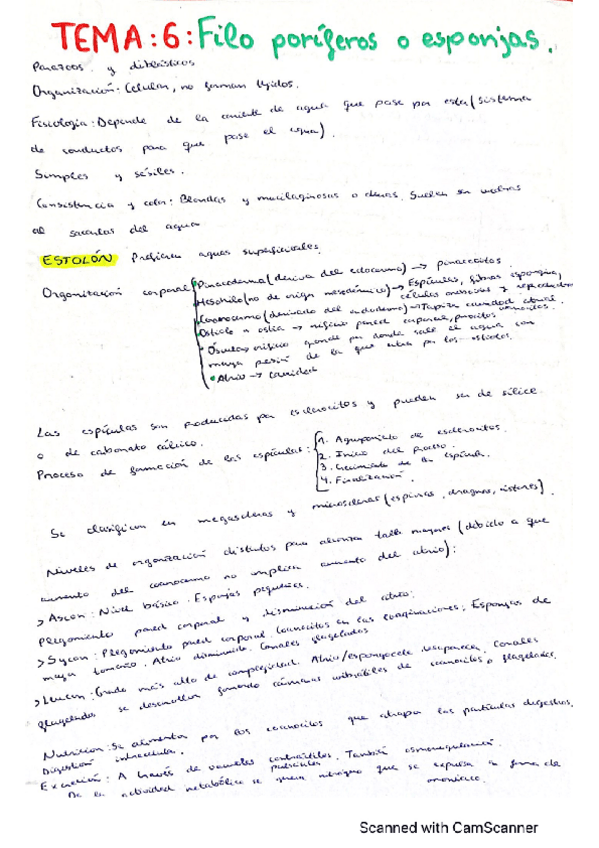 TEMA: 6: Filo poríferos o esponjas.
Parazoos y diblásticos
Organización: Celular, no forman tejidos.
Fisiología: Depende de la corriente de agua que pase por esta (sistema
de conductos para que pase el agua).
Simples y sésiles.
Consistencia y color: Blandas y mucilaginosas o duras. Suelen
al sacarlas del agua
ESTOLÓN Prefieren aguas superficiales.
Organización corporal
Pinacoderma (deriva del ectodermo) → pinacocitos
Mesohilo (no de origen mesodérmico) → Espículas, fibras espongina,
células ameboides y reproductoras
Coanodermo (derivado del endodermo) → Tapiza cavidad atrial.
Ostiolo u ostia → orificio pared corporal, porocitos
• Ósculo → orificio grande por donde sale el agua con
mayor presión de la que entra por los ostiolos.
• Atrio → cavidad
Las espículas son producidas por esclerocitos y pueden ser de sílice
o de carbonato cálcico.
Proceso de formación de las espículas:
1. Agrupamiento de esclerocitos.
2. Inicio del proceso.
3. Crecimiento de la espícula.
4. Finalización.
Se clasifican en megascleras y microscleras (espinas,
Niveles de organización distintos para alcanzar tallas mayores (debido a que
aumento del coanodermo no implica aumento del atrio):
> Ascon: Nivel básico. Esponjas pequeñas.
Plegamiento pared corporal y disminución del atrio:
> Sycon: Plegamiento pared corporal. Coanocitos en las Esponjas de
mayor tamaño. Atrio disminuido. Canales flagelados
> Leucon: Grado más alto de complejidad. Atrio/espongocele desaparece. Canales
flagelados se desarrollan formando cámaras vibrátiles de coanocitos o flageladas.
Nutrición: Se alimentan por los coanocitos que atrapan las partículas digestivas.
Digestión intracelular.
Excreción: A través de vacuolas contráctiles. También osmoregulación.
pulsátiles
De la actividad metabólica se genera nitrógeno que se expulsa en forma de
amoniaco.
Scanned with CamScanner